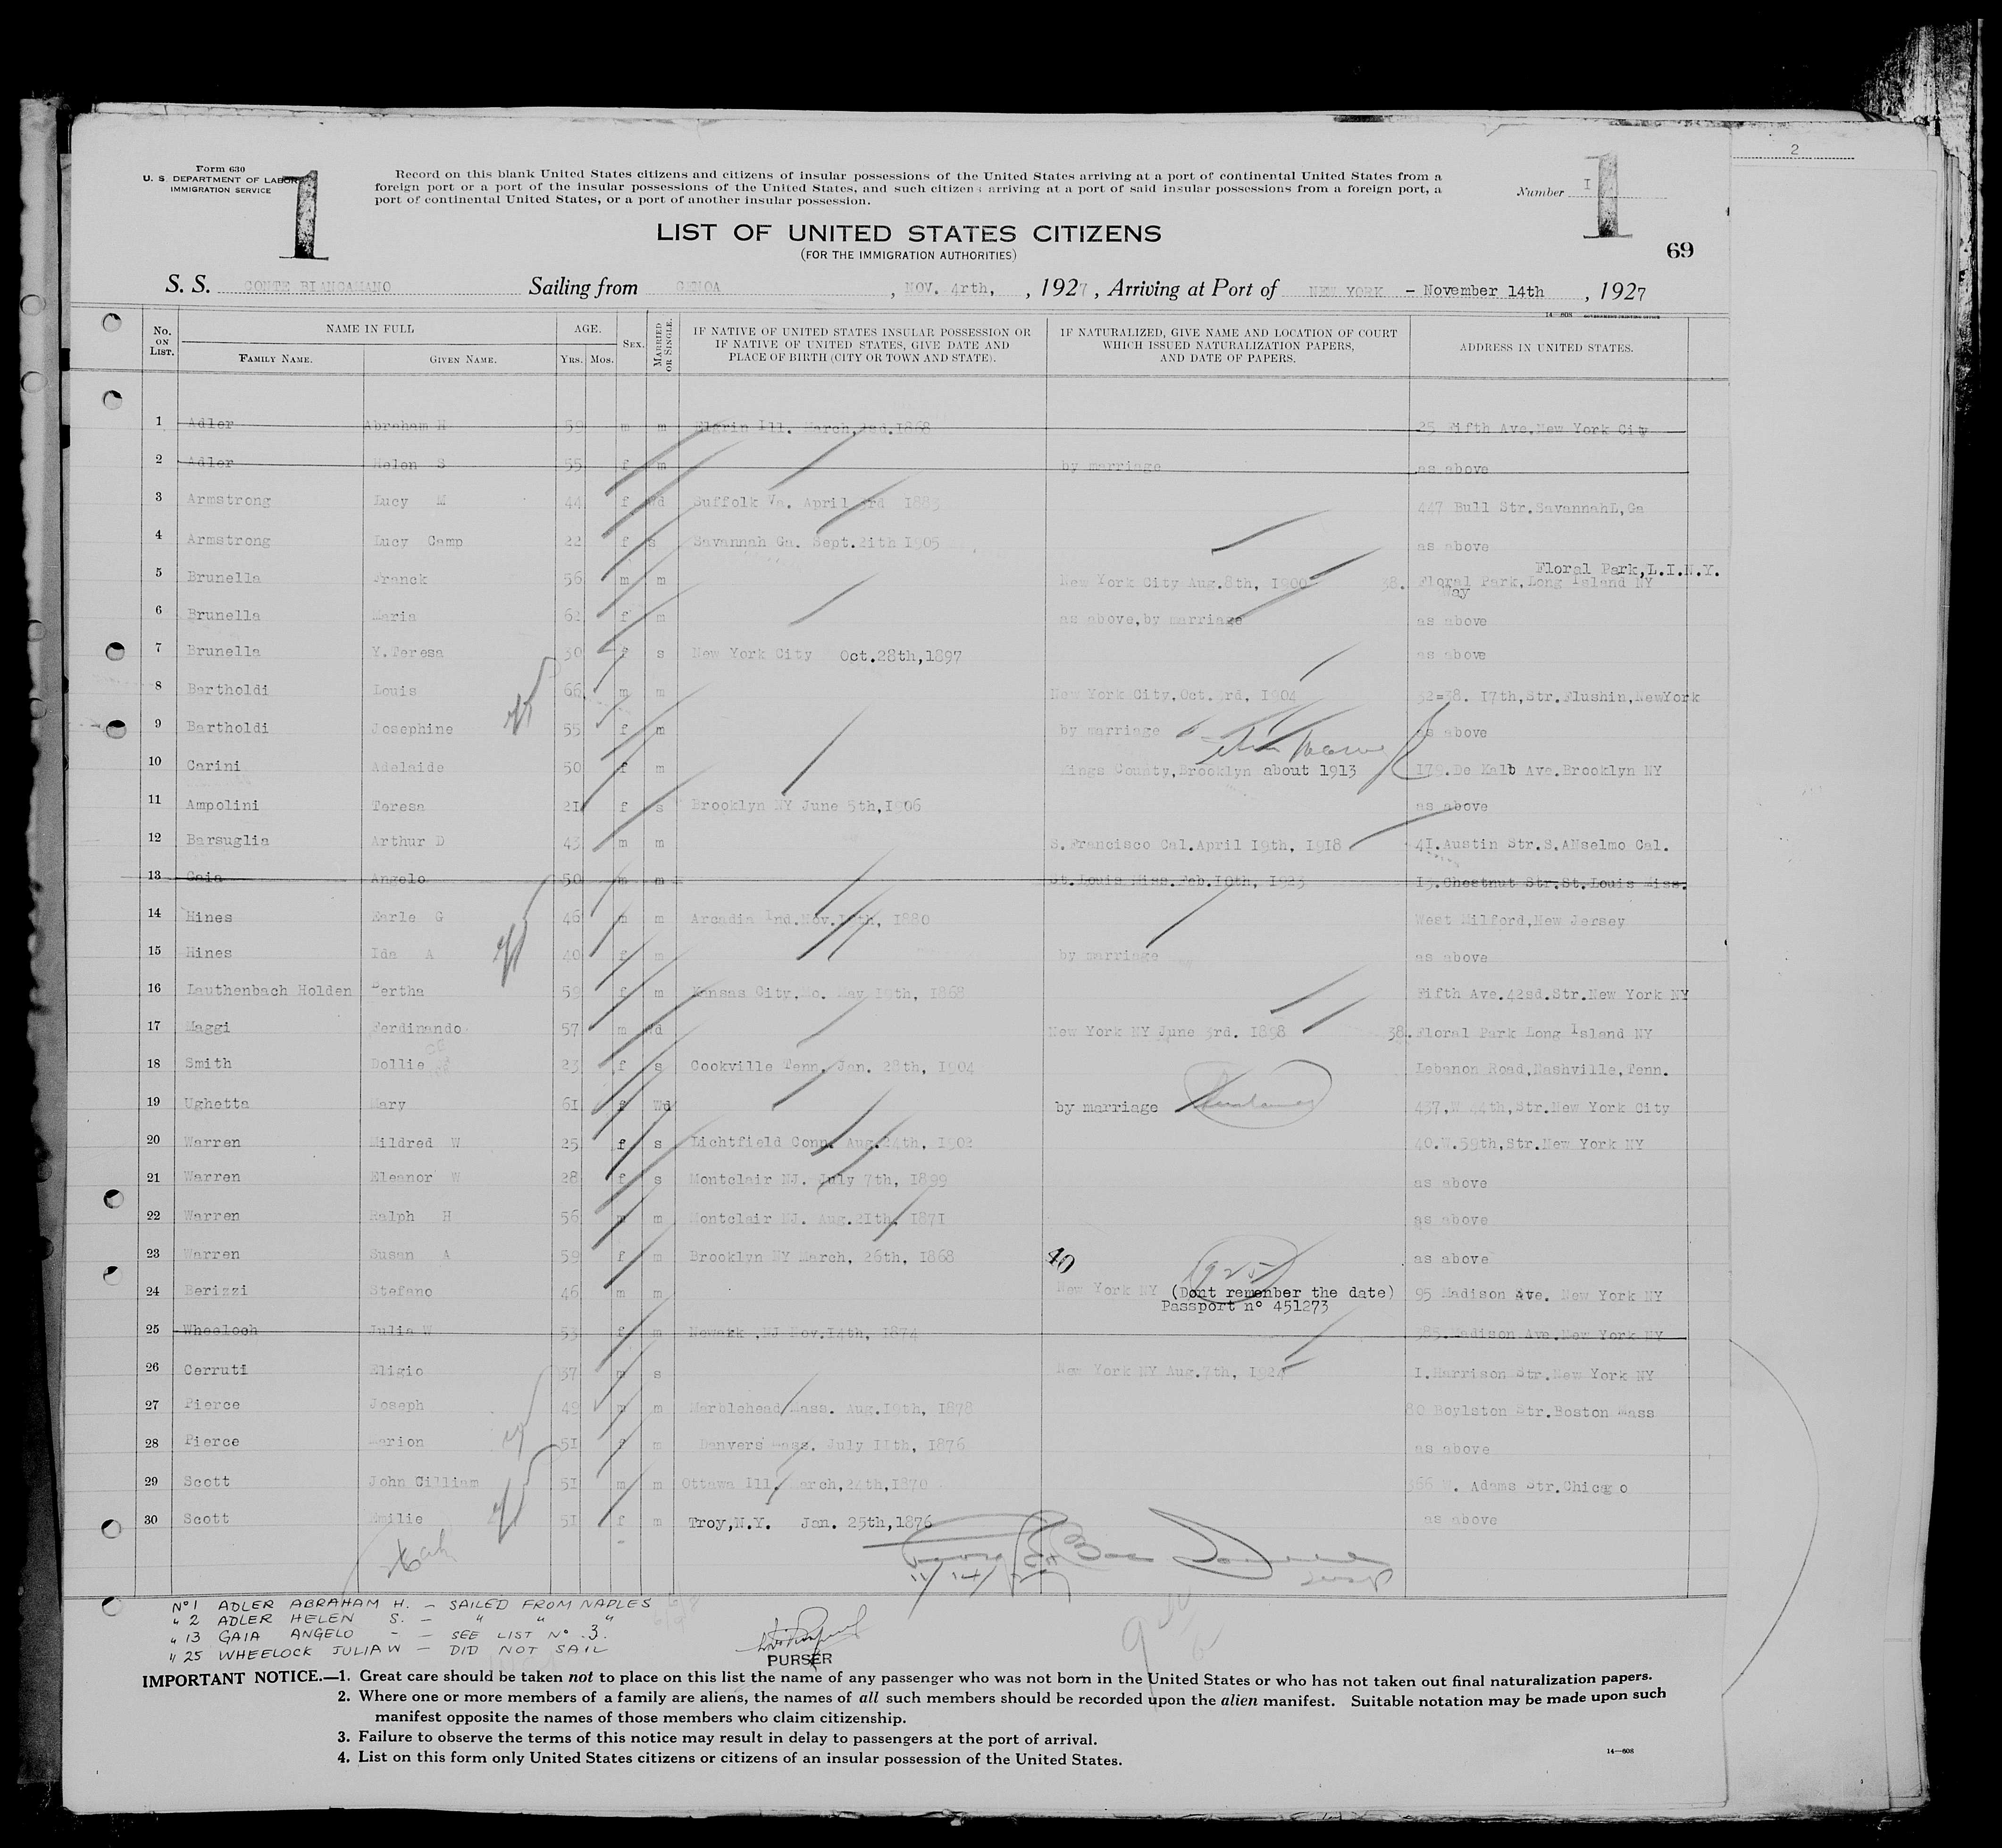 2
Form 630
U. S. DEPARTMENT OF LABOR
IMMIGRATION SERVICE
1
Record on this blank United States citizens and citizens of insular possessions of the United States arriving at a port of continental United States from a
foreign port or a port of the insular possessions of the United States, and such citizens arriving at a port of said insular possessions from a foreign port, a
port of continental United States, or a port of another insular possession.
Number I
1
LIST OF UNITED STATES CITIZENS
(FOR THE IMMIGRATION AUTHORITIES)
69
S. S. CONTE BIANCAMANO Sailing from GENOA , NOV. 4rth, , 1927, Arriving at Port of NEW YORK - November 14th , 1927
14-608 GOVERNMENT PRINTING OFFICE
No. ON LIST. NAME IN FULL FAMILY NAME. GIVEN NAME. AGE. Yrs. Mos. SEX. MARRIED OR SINGLE. IF NATIVE OF UNITED STATES INSULAR POSSESSION OR IF NATIVE OF UNITED STATES, GIVE DATE AND PLACE OF BIRTH (CITY OR TOWN AND STATE). IF NATURALIZED, GIVE NAME AND LOCATION OF COURT WHICH ISSUED NATURALIZATION PAPERS, AND DATE OF PAPERS. ADDRESS IN UNITED STATES.
1 Adler Abraham H 59 m m Elgrin Ill. March, 2nd. 1868 25 Fifth Ave. New York City
2 Adler Helen S 55 f m by marriage as above
3 Armstrong Lucy M 44 f Wd Suffolk Va. April 3rd 1883 447 Bull Str. SavannahL, Ga
4 Armstrong Lucy Camp 22 f s Savannah Ga. Sept. 2ith 1905 as above
Floral Park, L.I.N.Y.
5 Brunella Franck 56 m m New York City Aug. 8th, 1900 38. Floral Park, Long Island NY
Way
6 Brunella Maria 62 f m as above, by marriage as above
7 Brunella Y. Teresa 30 f s New York City Oct. 28th, 1897 as above
8 Bartholdi Louis 66 m m New York City, Oct. 3rd, 1904 32=38. 17th, Str. Flushin, NewYork
9 Bartholdi Josephine 55 f m by marriage as above
10 Carini Adelaide 50 f m Kings County, Brooklyn about 1913 179. De Kalb Ave. Brooklyn NY
11 Ampolini Teresa 21 f s Brooklyn NY June 5th, 1906 as above
12 Barsuglia Arthur D 43 m m S. Francisco Cal. April 19th, 1918 41. Austin Str. S. ANselmo Cal.
13 Gaia Angelo 50 m m St. Louis Miss. Feb. 10th, 1923 15. Chestnut Str. St. Louis Miss.
14 Hines Earle G 46 m m Arcadia Ind. Nov. 1880 West Milford, New Jersey
15 Hines Ida A 40 f m by marriage as above
16 Lauthenbach Holden Bertha 59 f m Kansas City, Mo. May 19th, 1868 Fifth Ave. 42sd. Str. New York NY
17 Maggi Ferdinando 57 m Wd New York NY June 3rd. 1898 38. Floral Park Long Island NY
18 Smith Dollie 23 f s Cookville Tenn. Jan. 28th, 1904 Lebanon Road, Nashville, Tenn.
19 Ughetta Mary 61 f Wd by marriage 437, W 44th, Str. New York City
20 Warren Mildred W 25 f s Lichtfield Conn. Aug. 24th, 1902 40. W. 59th, Str. New York NY
21 Warren Eleanor W 28 f s Montclair NJ. July 7th, 1899 as above
22 Warren Ralph H 56 m m Montclair NJ. Aug. 21th, 1871 as above
23 Warren Susan A 59 f m Brooklyn NY March, 26th, 1868 as above
10 1925
24 Berizzi Stefano 46 m m New York NY (Dont remenber the date) 95 Madison Ave. New York NY
Passport n° 451273
25 Wheeloch Julia W 53 f m Newark, NJ Nov. 14th, 1874 385. Madison Ave. New York NY
26 Cerruti Eligio 37 m s New York NY Aug. 7th, 1924 1. Harrison Str. New York NY
27 Pierce Joseph 49 m m Marblehead Mass. Aug. 19th, 1878 80 Boylston Str. Boston Mass
28 Pierce Marion 51 f m Danvers Mass. July 11th, 1876 as above
29 Scott John Cilliam 51 m m Ottawa Ill. March, 24th, 1870 366 W. Adams Str. Chicago
30 Scott Emilie 51 f m Troy, N.Y. Jan. 25th, 1876 as above
11/14/27
N°1 ADLER ABRAHAM H. - SAILED FROM NAPLES
" 2 ADLER HELEN S. - " " "
" 13 GAIA ANGELO - - SEE LIST N° 3.
" 25 WHEELOCK JULIA W - DID NOT SAIL
PURSER
IMPORTANT NOTICE.—1. Great care should be taken not to place on this list the name of any passenger who was not born in the United States or who has not taken out final naturalization papers.
2. Where one or more members of a family are aliens, the names of all such members should be recorded upon the alien manifest. Suitable notation may be made upon such
manifest opposite the names of those members who claim citizenship.
3. Failure to observe the terms of this notice may result in delay to passengers at the port of arrival.
4. List on this form only United States citizens or citizens of an insular possession of the United States.
14—608